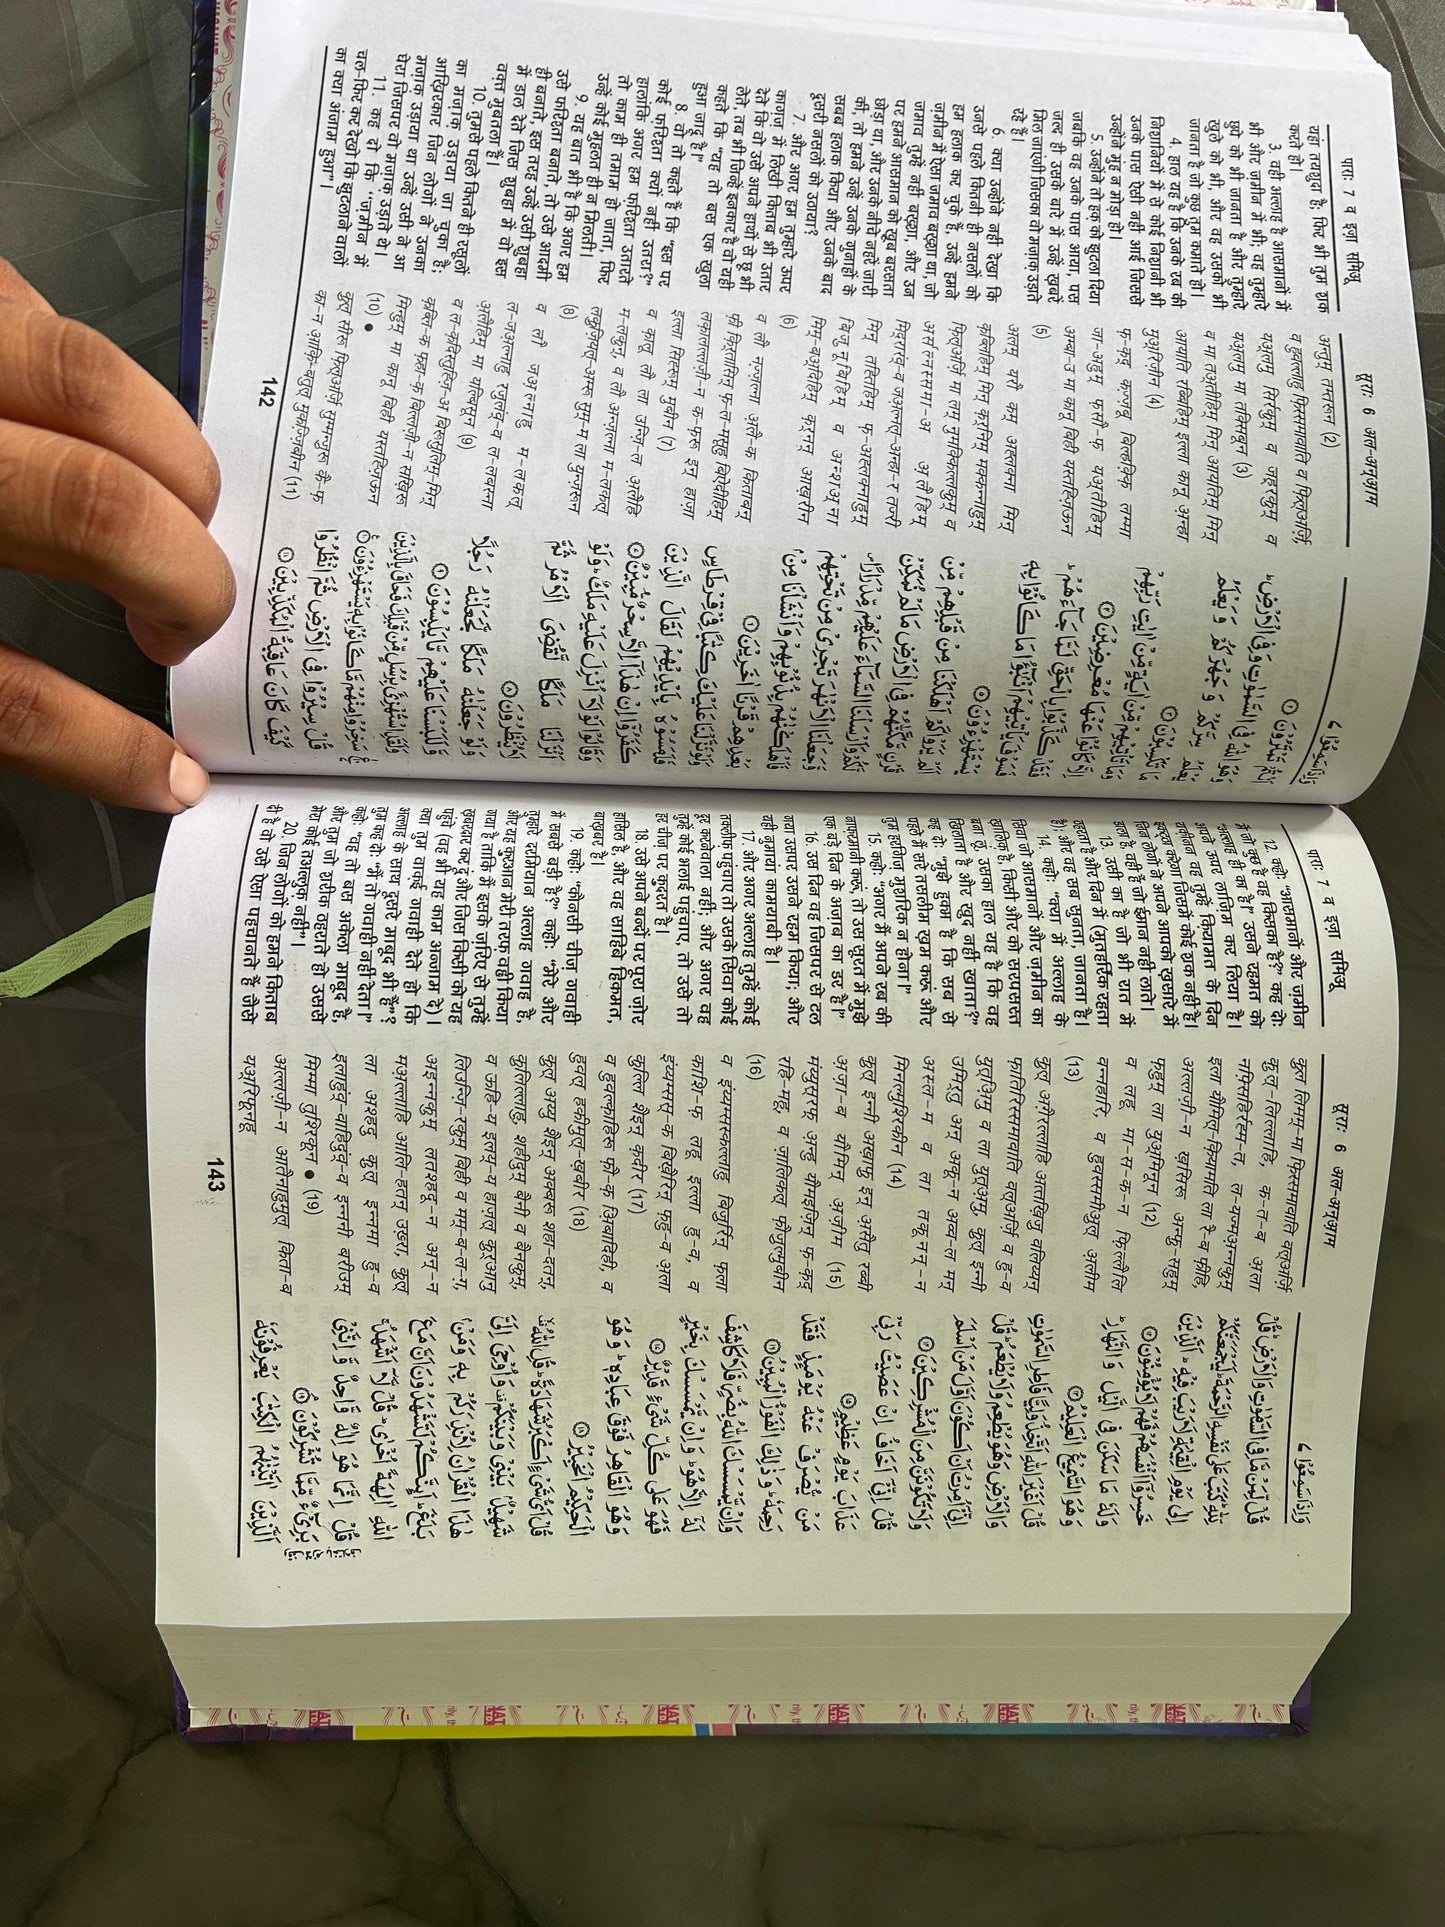 पारः 7 व इज़ा समिअू
सूरः 6 अल-अन्आम
وَاِذَا سَمِعُوْا ٧
यहां तयशुदा है, फिर भी तुम शक
करते हो।
3. वही अल्लाह है आसमानों में
भी और ज़मीन में भी, वह तुम्हारे
छुपे को भी जानता है और तुम्हारे
खुले को भी, और वह उसको भी
जानता है जो कुछ तुम कमाते हो।
4. हाल यह है कि उनके रब की
निशानियों में से कोई निशानी भी
उनके पास ऐसी नहीं आई जिससे
उन्होंने मुंह न मोड़ा हो।
5. उन्होंने तो हक़ को झुटला दिया
जबकि वह उनके पास आया, पस
जल्द ही उसके बारे में उन्हें ख़बरें
मिल जाएंगी जिसका वो मज़ाक़ उड़ाते
रहे हैं।
6. क्या उन्होंने नहीं देखा कि
उनसे पहले कितनी ही नस्लों को
हम हलाक कर चुके हैं, उन्हें हमने
ज़मीन में ऐसा जमाव बख़्शा था, जो
जमाव तुम्हें नहीं बख़्शा, और उन
पर हमने आसमान को ख़ूब बरसता
छोड़ा था, और उनके नीचे नहरें जारी
कीं, तो हमने उन्हें उनके गुनाहों के
सबब हलाक किया और उनके बाद
दूसरी नस्लों को उठाया?
7. और अगर हम तुम्हारे ऊपर
काग़ज़ में लिखी किताब भी उतार
देते कि वो उसे अपने हाथों से छू भी
लेते, तब भी जिन्हें इनकार है वो यही
कहते कि "यह तो बस एक खुला
हुआ जादू है।"
8. वो तो कहते हैं कि "इस पर
कोई फ़रिश्ता क्यों नहीं उतरा?"
हालांकि अगर हम फ़रिश्ता उतारते
तो काम ही तमाम हो जाता, फिर
उन्हें कोई मुहलत ही न मिलती।
9. यह बात भी है कि अगर हम
उसे फ़रिश्ता बनाते, तो उसे आदमी
ही बनाते, इस तरह उन्हें उसी शुबहा
में डाल देते जिस शुबहा में वो इस
वक़्त मुबतला हैं।
10. तुमसे पहले कितने ही रसूलों
का मज़ाक़ उड़ाया जा चुका है;
आख़िरकार जिन लोगों ने उनका
मज़ाक़ उड़ाया था उन्हें उसी ने आ
घेरा जिसपर वो मज़ाक़ उड़ाते थे।
11. कह दो कि "ज़मीन में
चल-फिर कर देखो कि झुटलाने वालों
का क्या अंजाम हुआ"।
अन्तुम् तम्तरून (2)
व हुवल्लाहु फ़िस्समावाति व फ़िल्अर्ज़ि
यअ्लमु सिर्रकुम् व जह्रकुम् व
यअ्लमु मा तक्सिबून (3)
व मा तअ्तीहिम् मिन् आयतिम् मिन्
आयाति रब्बिहिम् इल्ला कानू अन्हा
मुअ्रिज़ीन (4)
फ़-क़द् कज़्ज़बू बिल्हक़्क़ि लम्मा
जा-अहुम् फ़सौ-फ़ यअ्तीहिम्
अम्बा-उ मा कानू बिही यस्तह्ज़िऊन
(5)
अलम् यरौ कम् अह्लक्ना मिन्
क़ब्लिहिम् मिन् क़र्निम् मक्कन्नाहुम्
फ़िल्अर्ज़ि मा लम् नुमक्किल्लकुम् व
अर्सल्नस्समा-अ अलैहिम्
मिद्रारंव्-व जअल्नल्-अन्हा-र तज्री
मिन् तह्तिहिम् फ़-अह्लक्नाहुम्
बिज़ुनूबिहिम् व अन्शअ्ना
मिम्-बअ्दिहिम् क़र्नन् आख़रीन
(6)
व लौ नज़्ज़ल्ना अलै-क किताबन्
फ़ी क़िर्तासिन् फ़-ल-मसूहु बिऐदीहिम्
लक़ालल्लज़ी-न क-फ़रू इन् हाज़ा
इल्ला सिह्रुम् मुबीन (7)
व क़ालू लौ ला उन्ज़ि-ल अलैहि
म-लकुन्, व लौ अन्ज़ल्ना म-लकल्
लक़ुज़ियल्-अम्रु सुम्-म ला युन्ज़रून
(8)
व लौ जअल्नाहु म-लकल्
ल-जअल्नाहु रजुलंव्-व ल-लबस्ना
अलैहिम् मा यल्बिसून (9)
व ल-क़दिस्तुह्ज़ि-अ बिरुसुलिम्-मिन्
क़ब्लि-क फ़हा-क़ बिल्लज़ी-न सख़िरू
मिन्हुम् मा कानू बिही यस्तह्ज़िऊन
(10) ●
क़ुल् सीरू फ़िल्अर्ज़ि सुम्मन्ज़ुरू कै-फ़
का-न आक़ि-बतुल् मुकज़्ज़िबीन (11)
اَنْتُمْ تَمْتَرُوْنَ ۝
وَهُوَ اللّٰهُ فِي السَّمٰوٰتِ وَفِي الْاَرْضِ ؕ
يَعْلَمُ سِرَّكُمْ وَجَهْرَكُمْ وَيَعْلَمُ
مَا تَكْسِبُوْنَ ۝
وَمَا تَاْتِيْهِمْ مِّنْ اٰيَةٍ مِّنْ اٰيٰتِ رَبِّهِمْ
اِلَّا كَانُوْا عَنْهَا مُعْرِضِيْنَ ۝
فَقَدْ كَذَّبُوْا بِالْحَقِّ لَمَّا جَآءَهُمْ ؕ
فَسَوْفَ يَاْتِيْهِمْ اَنْۢبٰٓؤُا مَا كَانُوْا بِهٖ
يَسْتَهْزِءُوْنَ ۝
اَلَمْ يَرَوْا كَمْ اَهْلَكْنَا مِنْ قَبْلِهِمْ مِّنْ
قَرْنٍ مَّكَّنّٰهُمْ فِي الْاَرْضِ مَا لَمْ نُمَكِّنْ
لَّكُمْ وَاَرْسَلْنَا السَّمَآءَ عَلَيْهِمْ مِّدْرَارًا ۪
وَّجَعَلْنَا الْاَنْهٰرَ تَجْرِيْ مِنْ تَحْتِهِمْ
فَاَهْلَكْنٰهُمْ بِذُنُوْبِهِمْ وَاَنْشَاْنَا مِنْۢ
بَعْدِهِمْ قَرْنًا اٰخَرِيْنَ ۝
وَلَوْ نَزَّلْنَا عَلَيْكَ كِتٰبًا فِيْ قِرْطَاسٍ
فَلَمَسُوْهُ بِاَيْدِيْهِمْ لَقَالَ الَّذِيْنَ
كَفَرُوْٓا اِنْ هٰذَآ اِلَّا سِحْرٌ مُّبِيْنٌ ۝
وَقَالُوْا لَوْلَآ اُنْزِلَ عَلَيْهِ مَلَكٌ ؕ وَلَوْ
اَنْزَلْنَا مَلَكًا لَّقُضِيَ الْاَمْرُ ثُمَّ
لَا يُنْظَرُوْنَ ۝
وَلَوْ جَعَلْنٰهُ مَلَكًا لَّجَعَلْنٰهُ رَجُلًا
وَّلَلَبَسْنَا عَلَيْهِمْ مَّا يَلْبِسُوْنَ ۝
وَلَقَدِ اسْتُهْزِئَ بِرُسُلٍ مِّنْ قَبْلِكَ فَحَاقَ بِالَّذِيْنَ
سَخِرُوْا مِنْهُمْ مَّا كَانُوْا بِهٖ يَسْتَهْزِءُوْنَ ۝
قُلْ سِيْرُوْا فِي الْاَرْضِ ثُمَّ انْظُرُوْا
كَيْفَ كَانَ عَاقِبَةُ الْمُكَذِّبِيْنَ ۝
142
पारः 7 व इज़ा समिअू
सूरः 6 अल-अन्आम
وَاِذَا سَمِعُوْا ٧
12. कहोः "आसमानों और ज़मीन
में जो कुछ है वह किसका है?" कह दोः
"अल्लाह ही का है।" उसने रहमत को
अपने ऊपर लाज़िम कर लिया है।
यक़ीनन वह तुम्हें क़ियामत के दिन
इकट्ठा करेगा जिसमें कोई शक नहीं है।
जिन लोगों ने अपने आपको ख़सारे में
डाला है, वही हैं जो ईमान नहीं लाते।
13. उसी का है जो भी रात में
ठहरता है और दिन में (मुतहर्रिक रहता
है), और वह सब सुनता, जानता है।
14. कहोः "क्या मैं अल्लाह के
सिवा जो आसमानों और ज़मीन का
ख़ालिक़ है, किसी और को सरपरस्त
बना लूं, उसका हाल यह है कि वह
खिलाता है और ख़ुद नहीं खाता?"
कह दोः "मुझे हुक्म हुआ है कि सब से
पहले मैं सरे तस्लीम ख़म करूं, और
तुम हरगिज़ मुशरिक न होना।"
15. कहोः "अगर मैं अपने रब की
नाफ़रमानी करूं, तो उस सूरत में मुझे
एक बड़े दिन के अज़ाब का डर है।"
16. उस दिन वह जिसपर से टल
गया उसपर उसने रहम किया, और
यही नुमायां कामयाबी है।
17. और अगर अल्लाह तुम्हें कोई
तकलीफ़ पहुंचाए तो उसके सिवा कोई
दूर करनेवाला नहीं; और अगर वह
तुम्हें कोई भलाई पहुंचाए, तो उसे तो
हर चीज़ पर क़ुदरत है।
18. उसे अपने बन्दों पर पूरा ज़ोर
हासिल है, और वह साहिबे हिकमत,
बाख़बर है।
19. कहोः "कौनसी चीज़ गवाही
में सबसे बड़ी है?" कहोः "मेरे और
तुम्हारे दरमियान अल्लाह गवाह है,
और यह क़ुरआन मेरी तरफ़ वही किया
गया है ताकि मैं इसके ज़रिए से तुम्हें
ख़बरदार करूं और जिस किसी को यह
पहुंचे (वह भी यह काम अन्जाम दे)।
क्या तुम वाक़ई गवाही देते हो कि
अल्लाह के साथ दूसरे माबूद भी हैं"?
तुम कह दोः "मैं तो गवाही नहीं देता।"
कहोः "वह तो बस अकेला माबूद है,
और तुम जो शरीक ठहराते हो उससे
मेरा कोई तअल्लुक़ नहीं"।
20. जिन लोगों को हमने किताब
दी है वो उसे ऐसा पहचानते हैं जैसे
क़ुल् लिमम्-मा फ़िस्समावाति वल्अर्ज़ि
क़ुल्-लिल्लाहि, क-त-ब अला
नफ़्सिहिर्रह्म-त, ल-यज्मअन्नकुम्
इला यौमिल्-क़ियामति ला रै-ब फ़ीहि,
अल्लज़ी-न ख़सिरू अन्फ़ु-सहुम्
फ़हुम् ला युअ्मिनून (12)
व लहू मा-स-क-न फ़िल्लैलि
वन्नहारि, व हुवस्समीउल् अलीम
(13)
क़ुल् अग़ैरल्लाहि अत्तख़िज़ु वलिय्यन्
फ़ातिरिस्समावाति वल्अर्ज़ि व हु-व
युत्इमु व ला युत्अमु, क़ुल् इन्नी
उमिर्तु अन् अकू-न अव्व-ल मन्
अस्ल-म व ला तकूनन्-न
मिनल्मुश्रिकीन (14)
क़ुल् इन्नी अख़ाफ़ु इन् असैतु रब्बी
अज़ा-ब यौमिन् अज़ीम (15)
मंय्युस्रफ़् अन्हु यौमइज़िन् फ़-क़द्
रहि-मह्, व ज़ालिकल् फ़ौज़ुल्मुबीन
(16)
व इंय्यम्सस्कल्लाहु बिज़ुर्रिन् फ़ला
काशि-फ़ लहू इल्ला हु-व, व
इंय्यम्सस्-क बिख़ैरिन् फ़हु-व अला
कुल्लि शैइन् क़दीर (17)
व हुवल्क़ाहिरु फ़ौ-क़ इबादिही, व
हुवल् हकीमुल् ख़बीर (18)
क़ुल् अय्यु शैइन् अक्बरु शहा-दतन्,
क़ुलिल्लाहु शहीदुम् बैनी व बैनकुम्,
व ऊहि-य इलय्-य हाज़ल् क़ुर्आनु
लिउन्ज़ि-रकुम् बिही व मम्-ब-ल-ग़,
अइन्नकुम् लतश्हदू-न अन्-न
मअल्लाहि आलि-हतन् उख़्रा, क़ुल्
ला अश्हदु क़ुल् इन्नमा हु-व
इलाहुंव्-वाहिदुंव्-व इन्ननी बरीउम्
मिम्मा तुश्रिकून ● (19)
अल्लज़ी-न आतैनाहुमुल् किता-ब
यअ्रिफ़ूनहू
قُلْ لِّمَنْ مَّا فِي السَّمٰوٰتِ وَالْاَرْضِ ؕ قُلْ
لِّلّٰهِ ؕ كَتَبَ عَلٰى نَفْسِهِ الرَّحْمَةَ ؕ لَيَجْمَعَنَّكُمْ
اِلٰى يَوْمِ الْقِيٰمَةِ لَا رَيْبَ فِيْهِ ؕ اَلَّذِيْنَ
خَسِرُوْٓا اَنْفُسَهُمْ فَهُمْ لَا يُؤْمِنُوْنَ ۝
وَلَهٗ مَا سَكَنَ فِي الَّيْلِ وَالنَّهَارِ ؕ
وَهُوَ السَّمِيْعُ الْعَلِيْمُ ۝
قُلْ اَغَيْرَ اللّٰهِ اَتَّخِذُ وَلِيًّا فَاطِرِ السَّمٰوٰتِ
وَالْاَرْضِ وَهُوَ يُطْعِمُ وَلَا يُطْعَمُ ؕ قُلْ
اِنِّيْٓ اُمِرْتُ اَنْ اَكُوْنَ اَوَّلَ مَنْ اَسْلَمَ
وَلَا تَكُوْنَنَّ مِنَ الْمُشْرِكِيْنَ ۝
قُلْ اِنِّيْٓ اَخَافُ اِنْ عَصَيْتُ رَبِّيْ
عَذَابَ يَوْمٍ عَظِيْمٍ ۝
مَنْ يُّصْرَفْ عَنْهُ يَوْمَئِذٍ فَقَدْ
رَحِمَهٗ ؕ وَذٰلِكَ الْفَوْزُ الْمُبِيْنُ ۝
وَاِنْ يَّمْسَسْكَ اللّٰهُ بِضُرٍّ فَلَا كَاشِفَ
لَهٗٓ اِلَّا هُوَ ؕ وَاِنْ يَّمْسَسْكَ بِخَيْرٍ
فَهُوَ عَلٰى كُلِّ شَيْءٍ قَدِيْرٌ ۝
وَهُوَ الْقَاهِرُ فَوْقَ عِبَادِهٖ ؕ وَهُوَ
الْحَكِيْمُ الْخَبِيْرُ ۝
قُلْ اَيُّ شَيْءٍ اَكْبَرُ شَهَادَةً ؕ قُلِ اللّٰهُ ۙ
شَهِيْدٌۢ بَيْنِيْ وَبَيْنَكُمْ ۟ وَاُوْحِيَ اِلَيَّ
هٰذَا الْقُرْاٰنُ لِاُنْذِرَكُمْ بِهٖ وَمَنْۢ
بَلَغَ ؕ اَئِنَّكُمْ لَتَشْهَدُوْنَ اَنَّ مَعَ
اللّٰهِ اٰلِهَةً اُخْرٰى ؕ قُلْ لَّآ اَشْهَدُ ۚ
قُلْ اِنَّمَا هُوَ اِلٰهٌ وَّاحِدٌ وَّاِنَّنِيْ
بَرِيْٓءٌ مِّمَّا تُشْرِكُوْنَ ۝
اَلَّذِيْنَ اٰتَيْنٰهُمُ الْكِتٰبَ يَعْرِفُوْنَهٗ
143